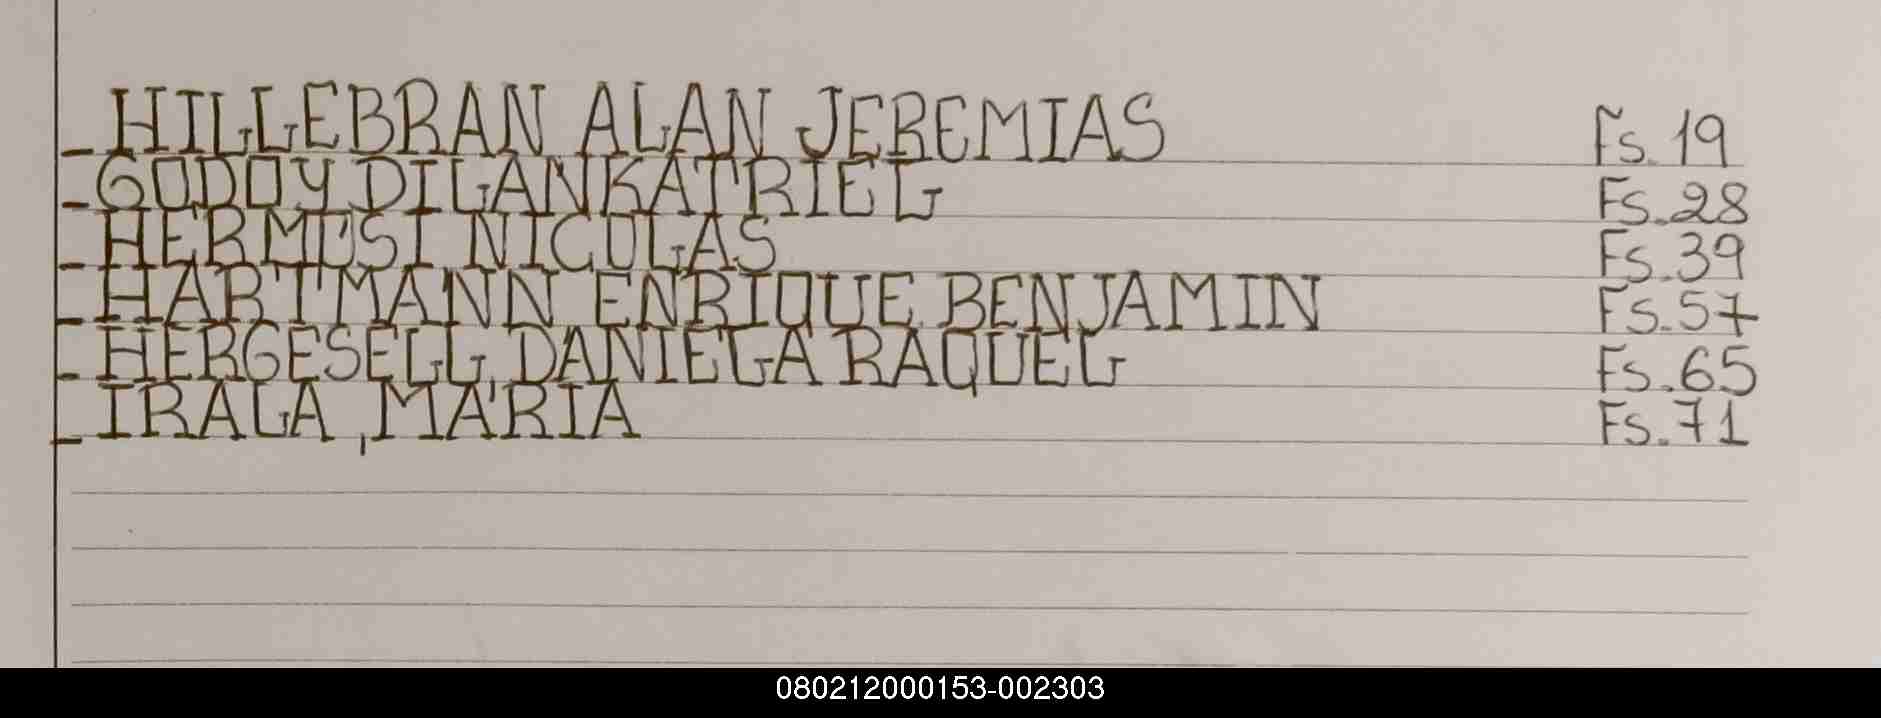 - HILLEBRAN ALAN JEREMIAS Fs. 19
- GODOY DILAN KATRIEL Fs. 28
- HERMOSI NICOLAS Fs. 39
- HARTMANN ENRIQUE BENJAMIN Fs. 57
- HERGESELL, DANIELA RAQUEL Fs. 65
- IRALA, MARIA Fs. 71
080212000153-002303